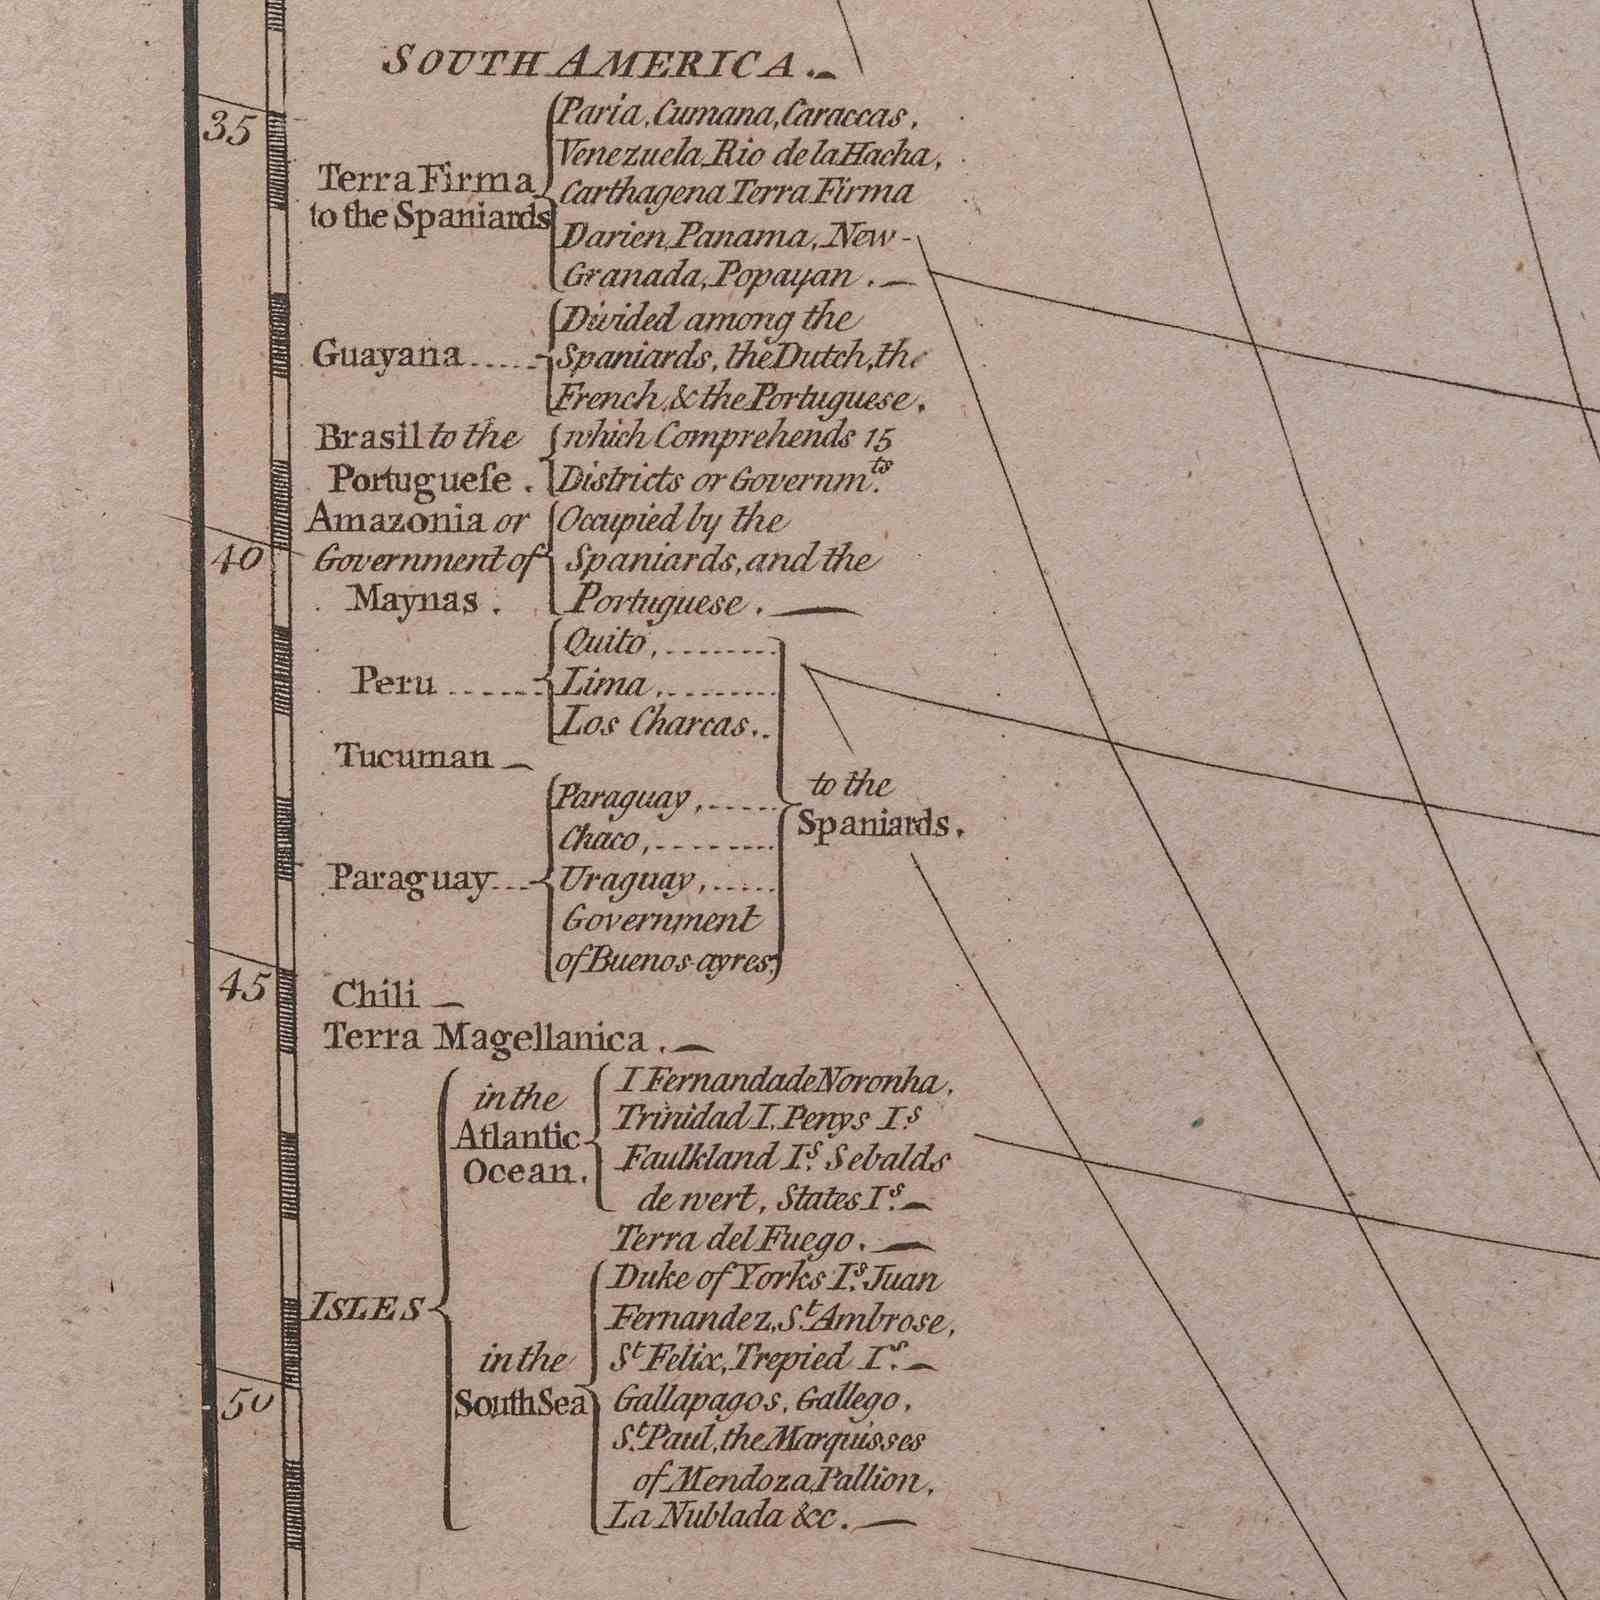 SOUTH AMERICA.
35
Terra Firma
to the Spaniards
Paria, Cumana, Caraccas,
Venezuela, Rio de la Hacha,
Carthagena Terra Firma
Darien, Panama, New-
Granada, Popayan.
Guayana
Divided among the
Spaniards, the Dutch, the
French, & the Portuguese.
Brasil to the
Portuguese.
which Comprehends 15
Districts or Governm.ts
40
Amazonia or
Government of
Maynas.
Occupied by the
Spaniards, and the
Portuguese.
Peru
Quito,
Lima,
Los Charcas.
Tucuman
Paraguay
Paraguay,
Chaco,
Uraguay,
Government
of Buenos-ayres;
to the
Spaniards.
45
Chili
Terra Magellanica.
ISLES
in the
Atlantic
Ocean.
I Fernanda de Noronha,
Trinidad I. Penys I.s
Faulkland I.s Sebalds
de wert, States I.s
Terra del Fuego.
50
in the
South Sea
Duke of Yorks I.s Juan
Fernandez, S.t Ambrose,
S.t Felix, Trepied I.s
Gallapagos, Gallego,
S.t Paul, the Marquisses
of Mendoza, Pallion,
La Nublada &c.